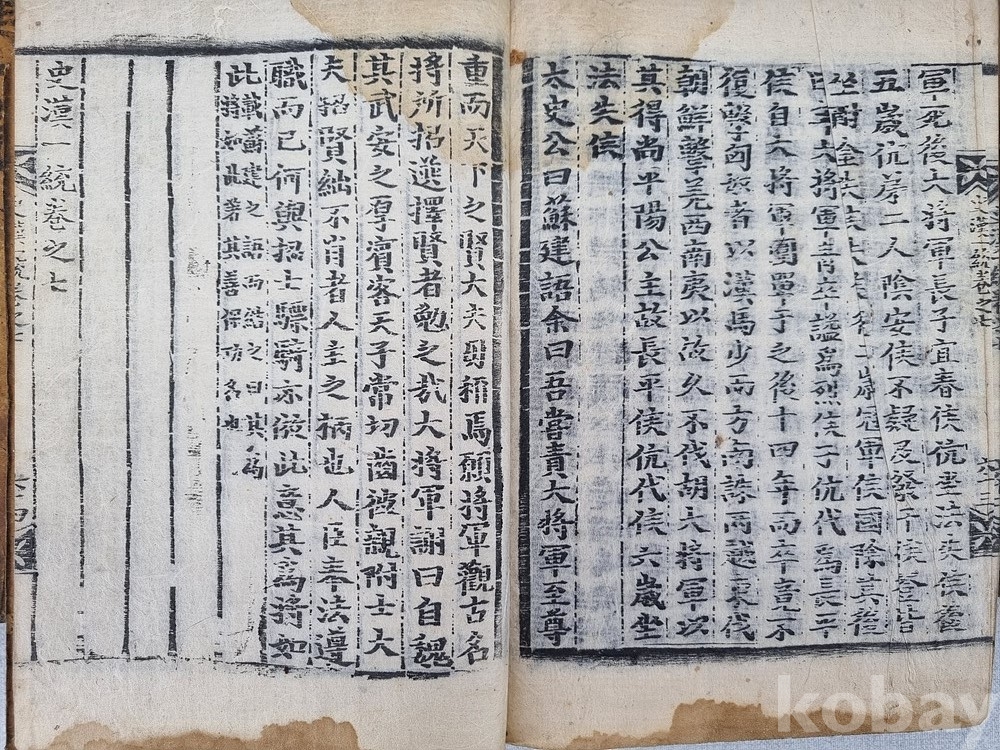 軍死後大將軍長子宜春侯伉坐法失侯後
五歲伉弟二人陰安侯不疑及發干侯登皆
坐酎金失侯失侯後二歲冠軍侯國除其後
四年大將軍青卒謚爲烈侯子伉代爲長平
侯自大將軍圍單于之後十四年而卒竟不
復擊匈奴者以漢馬少而方南誅兩越東伐
朝鮮擊羌西南夷以故久不伐胡大將軍以
其得尚平陽公主故長平侯伉代侯六歲坐
法失侯
太史公曰蘇建語余曰吾嘗責大將軍至尊
重而天下之賢大夫毋稱焉願將軍觀古名
將所招選擇賢者勉之哉大將軍謝曰自魏
其武安之厚賓客天子常切齒彼親附士大
夫招賢絀不肖者人主之柄也人臣奉法遵
職而已何與招士驃騎亦放此意其爲將如
此
載蘇建之語而結之曰其爲
將如此著其善保功名也
史漢一統卷之七
kobay